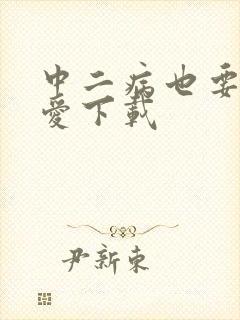 中二病也要
愛下載
尹新東